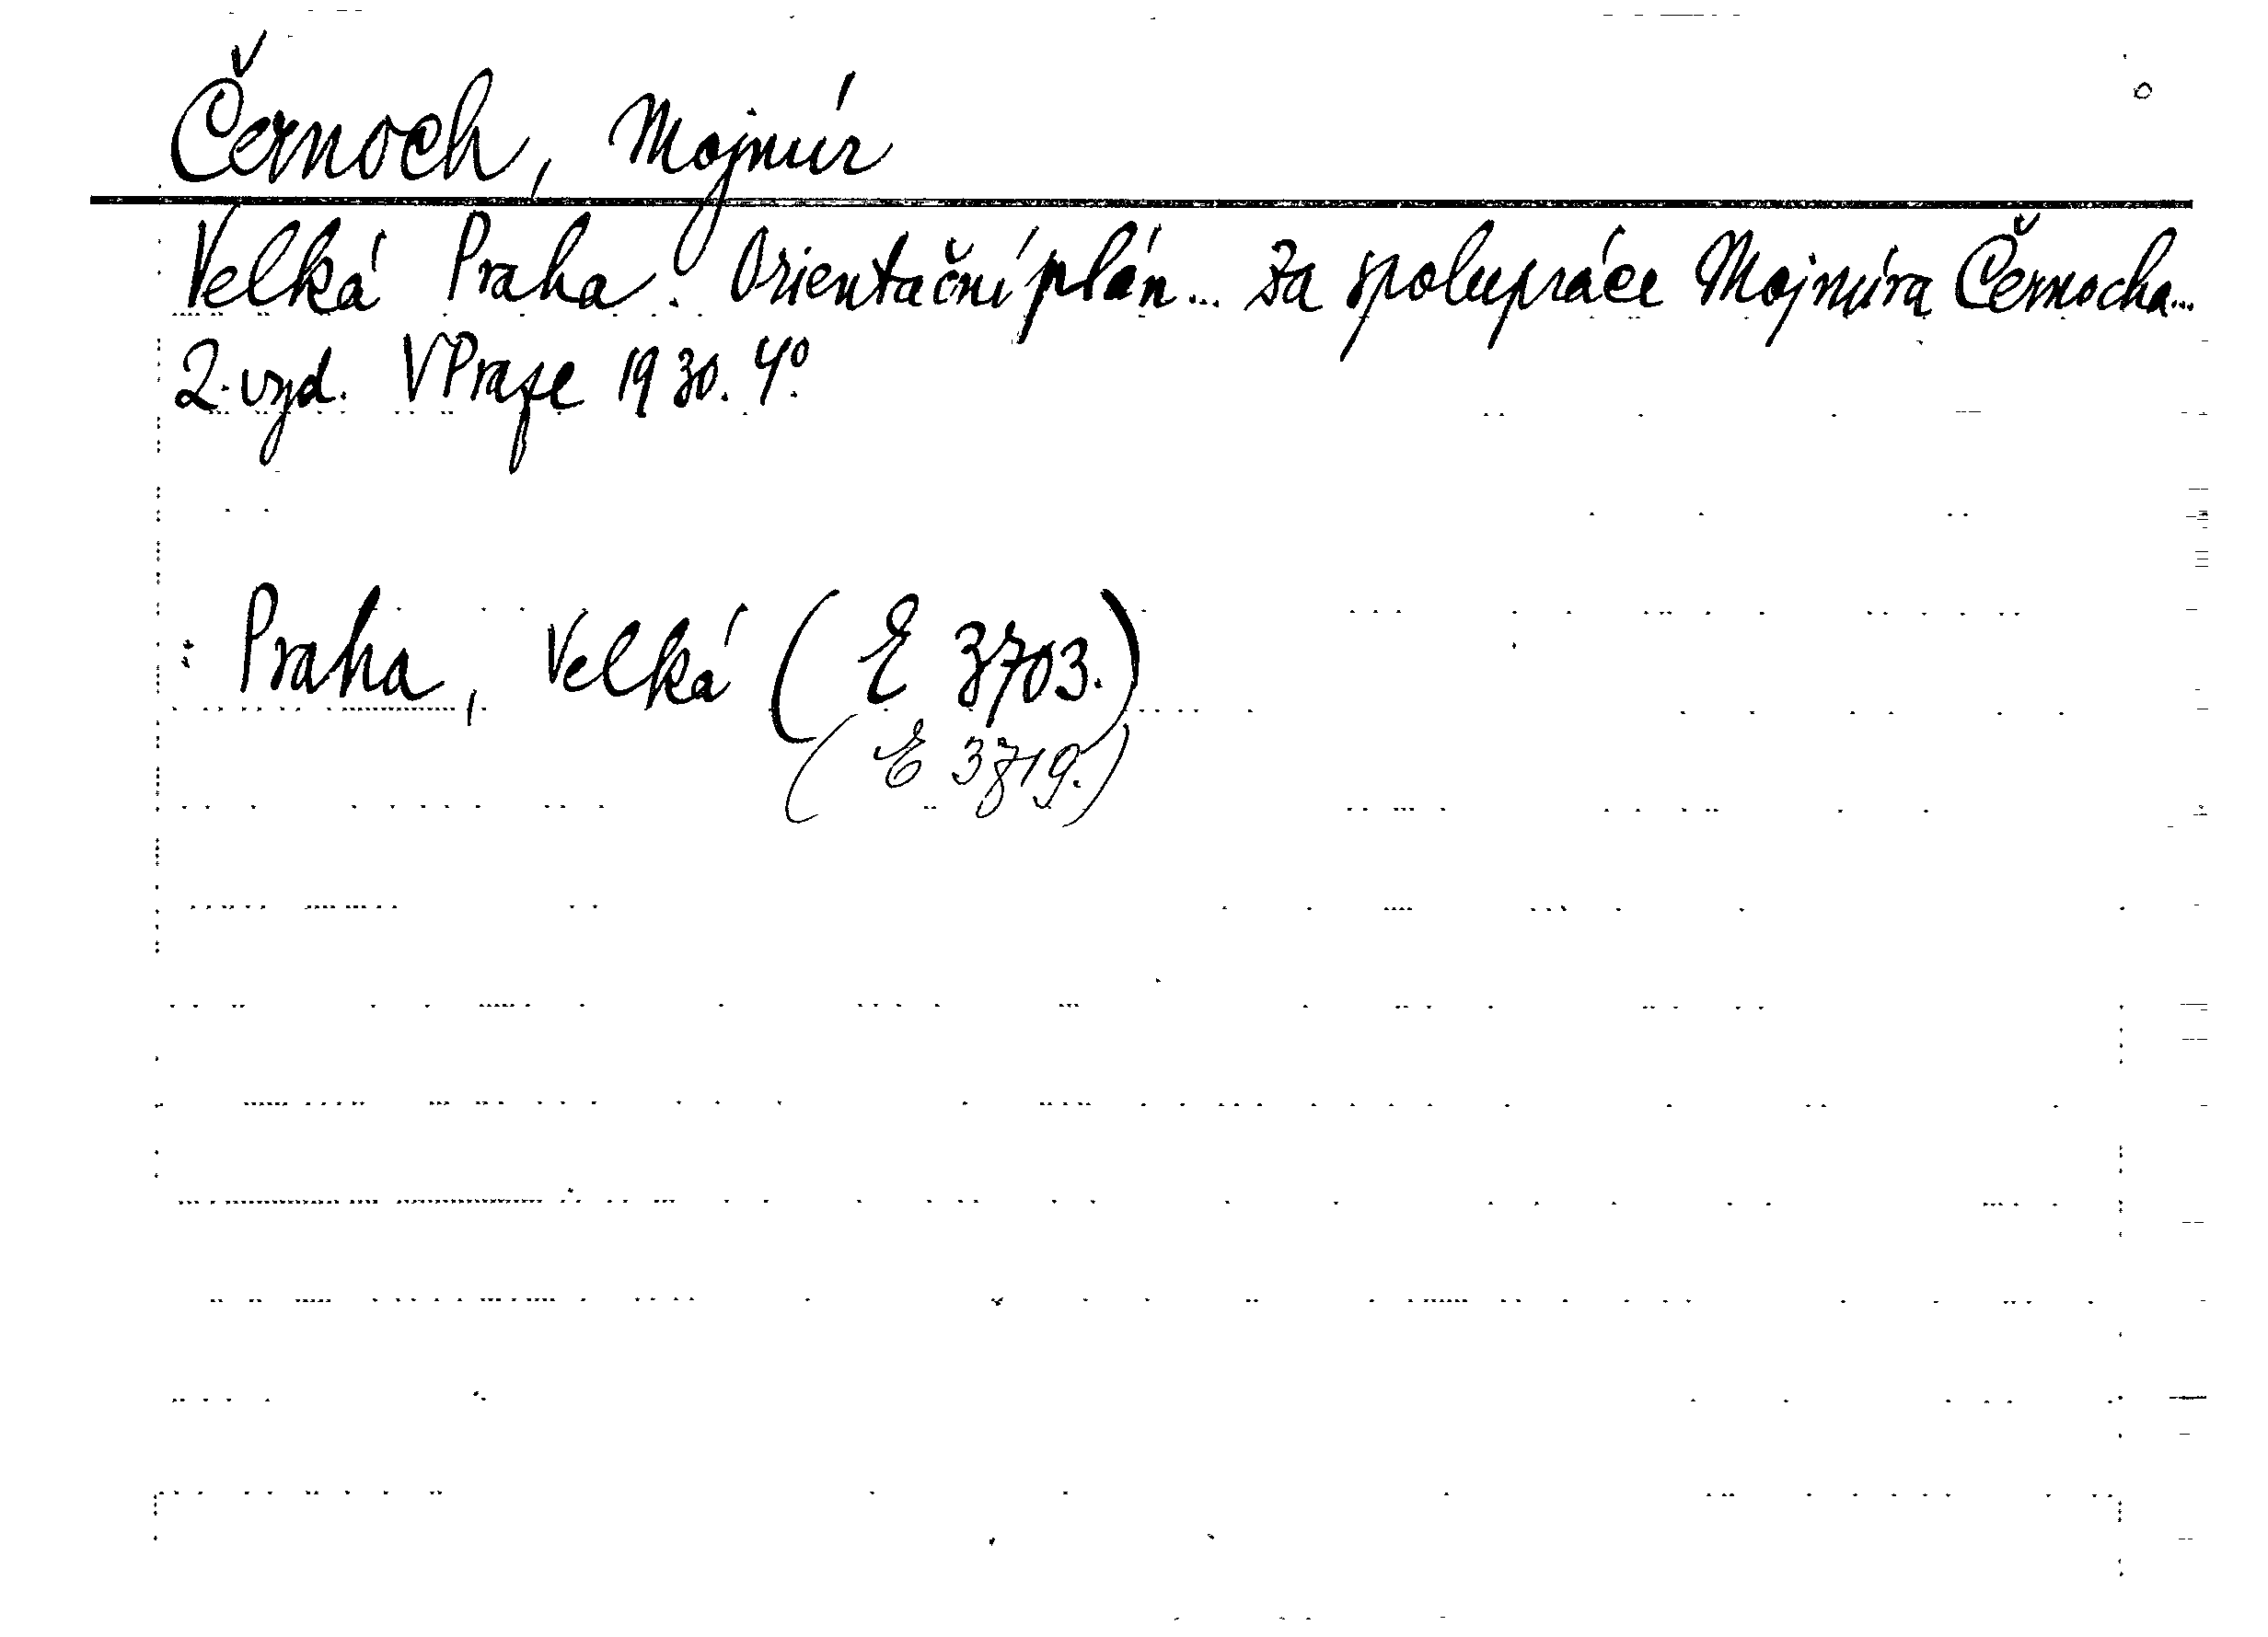 Černoch, Mojmír
Velká Praha. Orientační plán... Za spolupráce Mojmíra Černocha...
2. vyd. V Praze 1930. 4°.
: Praha, Velká (E 3703.)
(E 3719.)